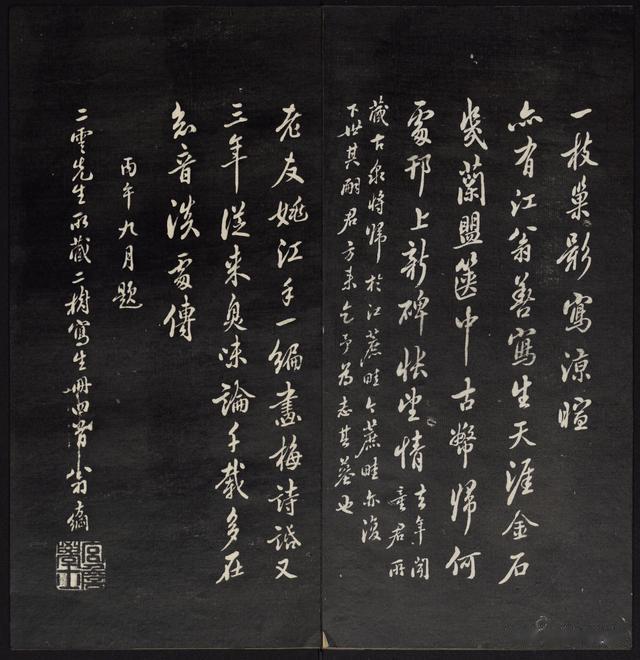 一枝巢影寫涼暄
亦有江翁善寫生天涯金石
幾蘭盟篋中古幣歸何
處邗上新碑悵望情
去年聞
童君所
藏古泉將歸於江蔗畦今蔗畦亦復
下世其嗣君方來乞予為志其墓也
老友姚江手一編畫梅詩話又
三年從來臭味論千載多在
知音淡處傳
丙午九月題
二雲先生所藏二樹寫生冊翁綱
宮詹
學士